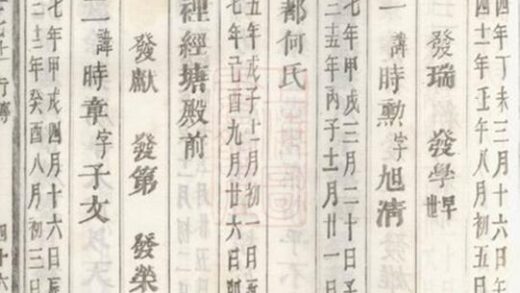 四年丁未三月十六日
十一年 八月初五日
發瑞 發學早世
一諱時勲字旭淸
七年甲戌三月二十日子
五年丙子十一月廿一日
都何氏
五年戊子十一月初二日
七年己酉九月廿六日
裡經塘殿前
發獻 發第 發榮
二諱時章字子文
七年甲戌四月十六日辰
十二年癸酉八月初三日
行傳 四十六